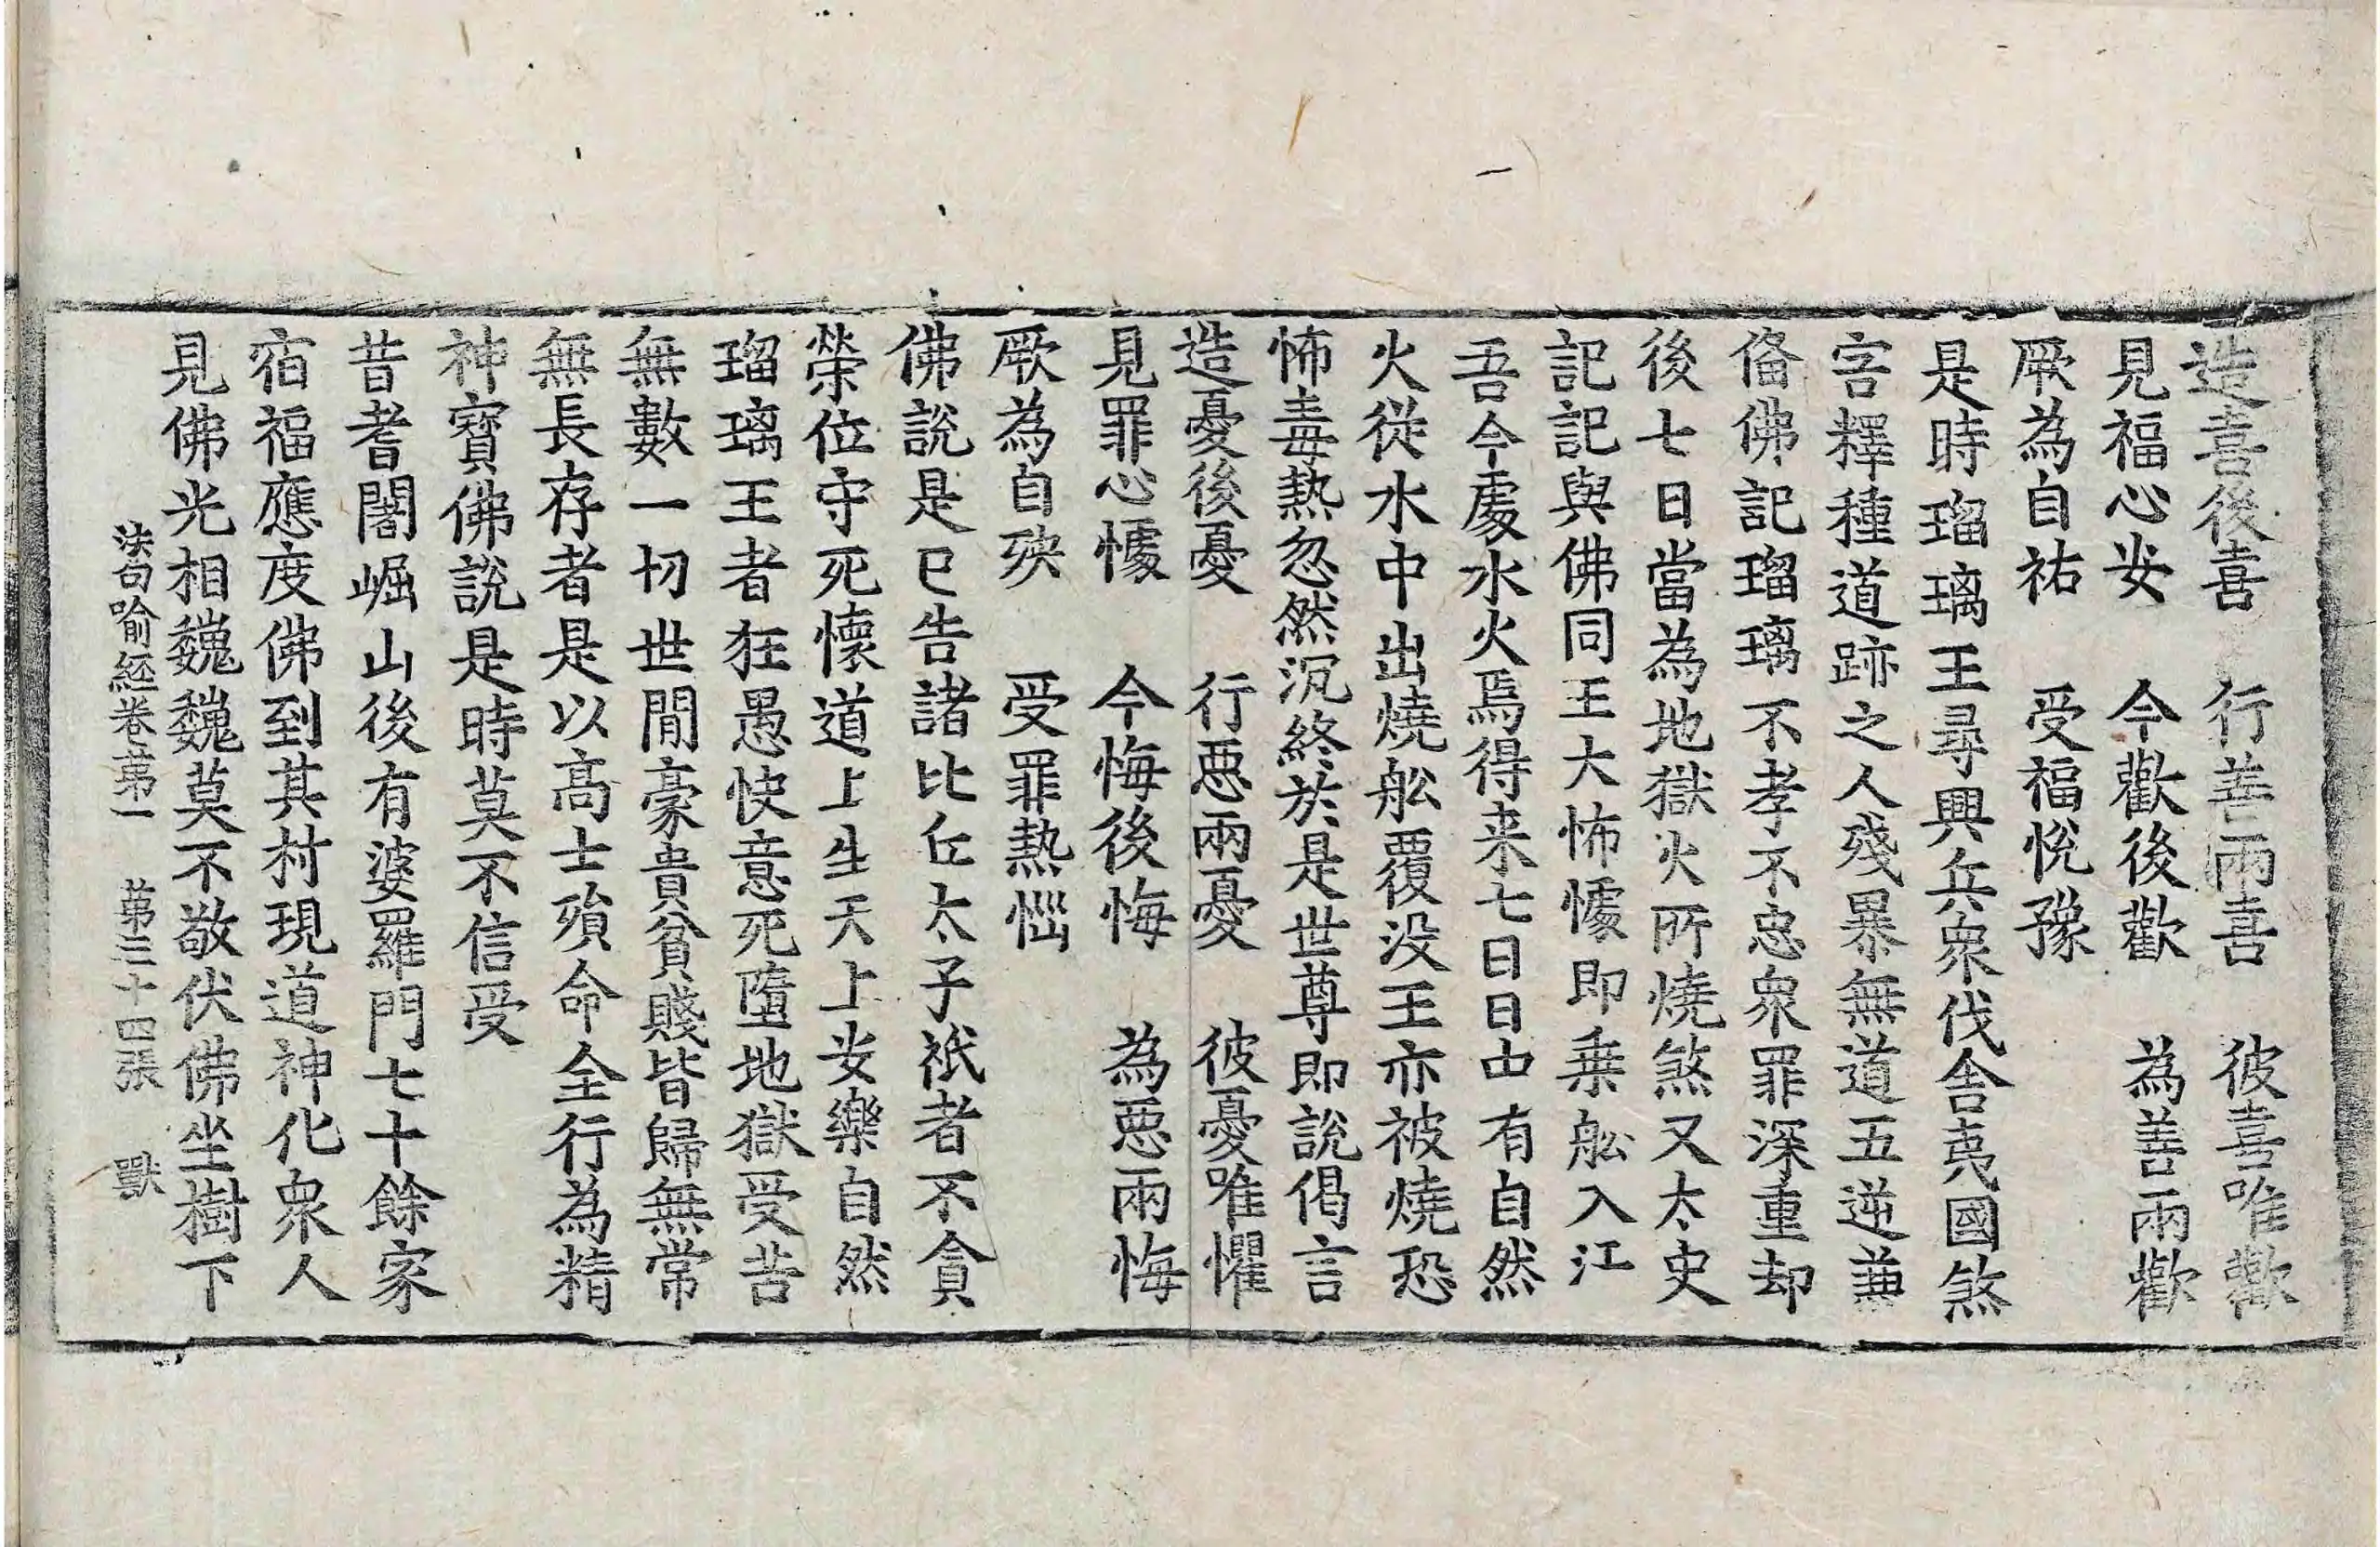 造喜後喜　行善兩喜　彼喜唯歡
見福心安　今歡後歡　為善兩歡
厥為自祐　受福悅豫
是時瑠璃王尋興兵衆伐舍夷國煞
害釋種道跡之人殘暴無道五逆兼
俻佛記瑠璃不孝不忠衆罪深重却
後七日當為地獄火所燒煞又太史
記記與佛同王大怖懅即乗舩入江
吾今處水火焉得来七日日中有自然
火從水中出燒舩覆没王亦被燒恐
怖毒熱忽然沉終於是世尊即說偈言
造憂後憂　行惡兩憂　彼憂唯懼
見罪心懅　今悔後悔　為惡兩悔
厥為自殃　受罪熱惱
佛說是已告諸比丘太子祇者不貪
榮位守死懷道上生天上安樂自然
瑠璃王者狂愚快意死墮地獄受苦
無數一切世間豪貴貧賤皆歸無常
無長存者是以高士殞命全行為精
神寶佛說是時莫不信受
昔耆闍崛山後有婆羅門七十餘家
宿福應度佛到其村現道神化衆人
見佛光相巍巍莫不敬伏佛坐樹下
法句喻經卷第一　第三十四張　獸